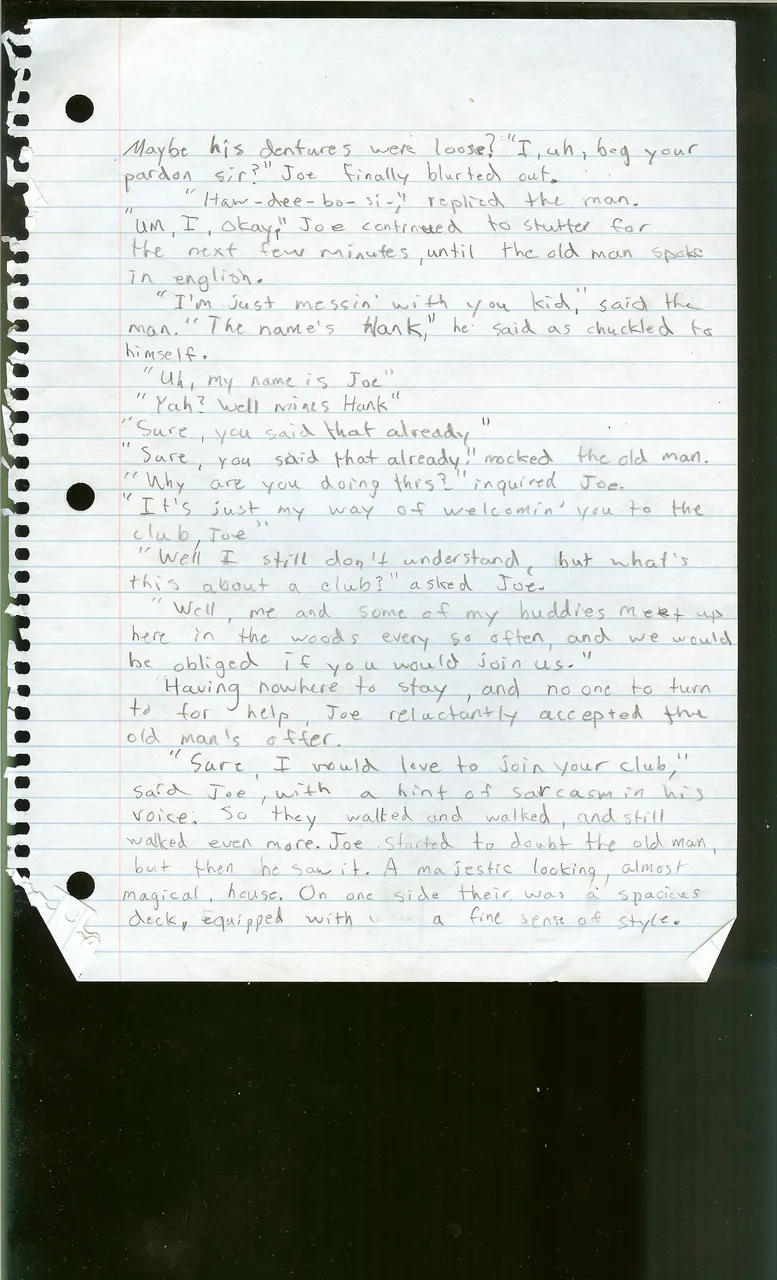 Maybe his dentures were loose? "I, uh, beg your
pardon sir?" Joe finally blurted out.
"Haw-dee-bo-si-," replied the man.
"um, I, okay," Joe continued to stutter for
the next few minutes, until the old man spoke
in english.
"I'm just messin' with you kid," said the
man. "The name's Hank," he said as chuckled to
himself.
"Uh, my name is Joe"
"Yah? Well mines Hank"
"Sure, you said that already"
"Sure, you said that already," mocked the old man.
"Why are you doing this?" inquired Joe.
"It's just my way of welcomin' you to the
club, Joe"
"Well I still don't understand, but what's
this about a club?" asked Joe.
"Well, me and some of my buddies meet up
here in the woods every so often, and we would
be obliged if you would join us."
Having nowhere to stay, and no one to turn
to for help, Joe reluctantly accepted the
old man's offer.
"Sure, I would love to join your club,"
said Joe, with a hint of sarcasm in his
voice. So they walked and walked, and still
walked even more. Joe started to doubt the old man,
but then he saw it. A majestic looking, almost
magical, house. On one side their was a spacious
deck, equipped with a fine sense of style.